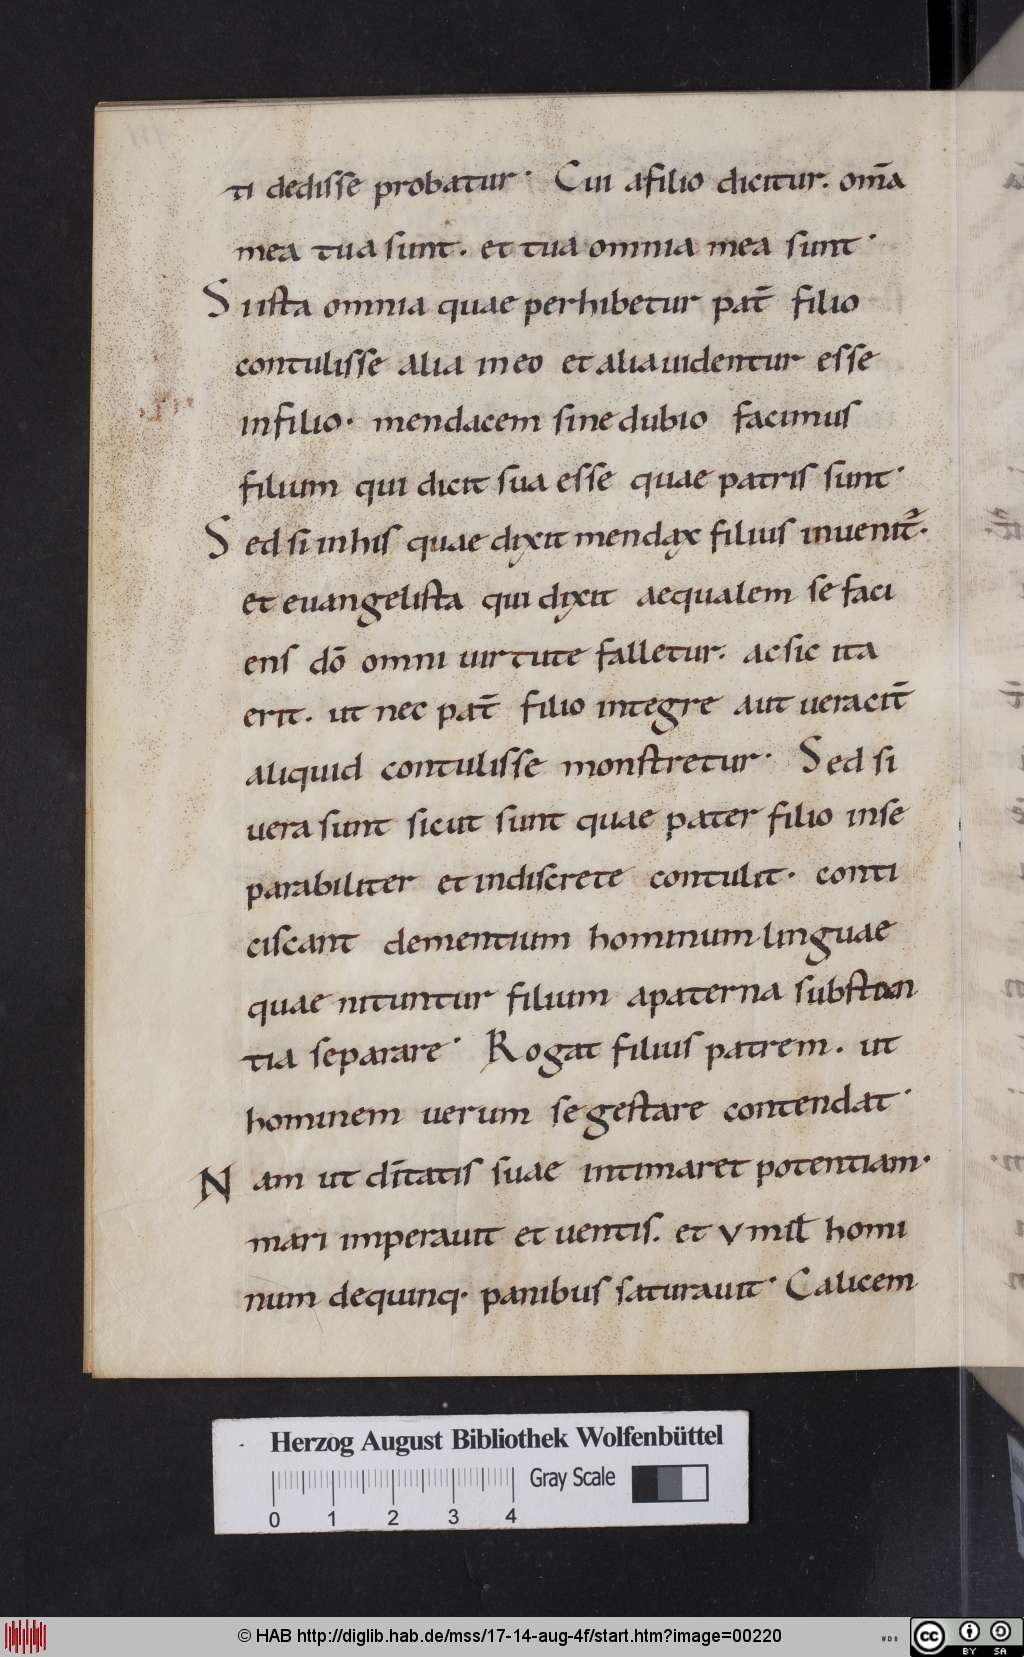 ti dedisse probatur· Cui afilio dicitur. om̅a
mea tua sunt. et tua omnia mea sunt·
S iista omnia quae perhibetur pat̅ filio
contulisse alia in eo et alia uidentur esse
infilio· mendacem sine dubio facimus
filium qui dicit sua esse quae patris sunt·
S ed si in his quae dixit mendax filius inuenit᷑·
et euangelista qui dixit aequalem se faci
ens do̅ omni uirtute falletur. ac sic ita
erit. ut nec pat̅ filio integre aut ueracit̅
aliquid contulisse monstretur· Sed si
uera sunt sicut sunt quae pater filio inse
parabiliter et indiscrete contulit· conti
ciscant dementium hominum linguae
quae nituntur filium apaterna substan
tia separare· Rogat filius patrem. ut
hominem uerum se gestare contendat·
N am ut di̅tatis suae intimaret potentiam·
mari imperauit et uentis. et v mil̅ homi
num dequinq· panibus saturauit· Calicem
Herzog August Bibliothek Wolfenbüttel
Gray Scale
0 1 2 3 4
© HAB http://diglib.hab.de/mss/17-14-aug-4f/start.htm?image=00220
cc BY SA